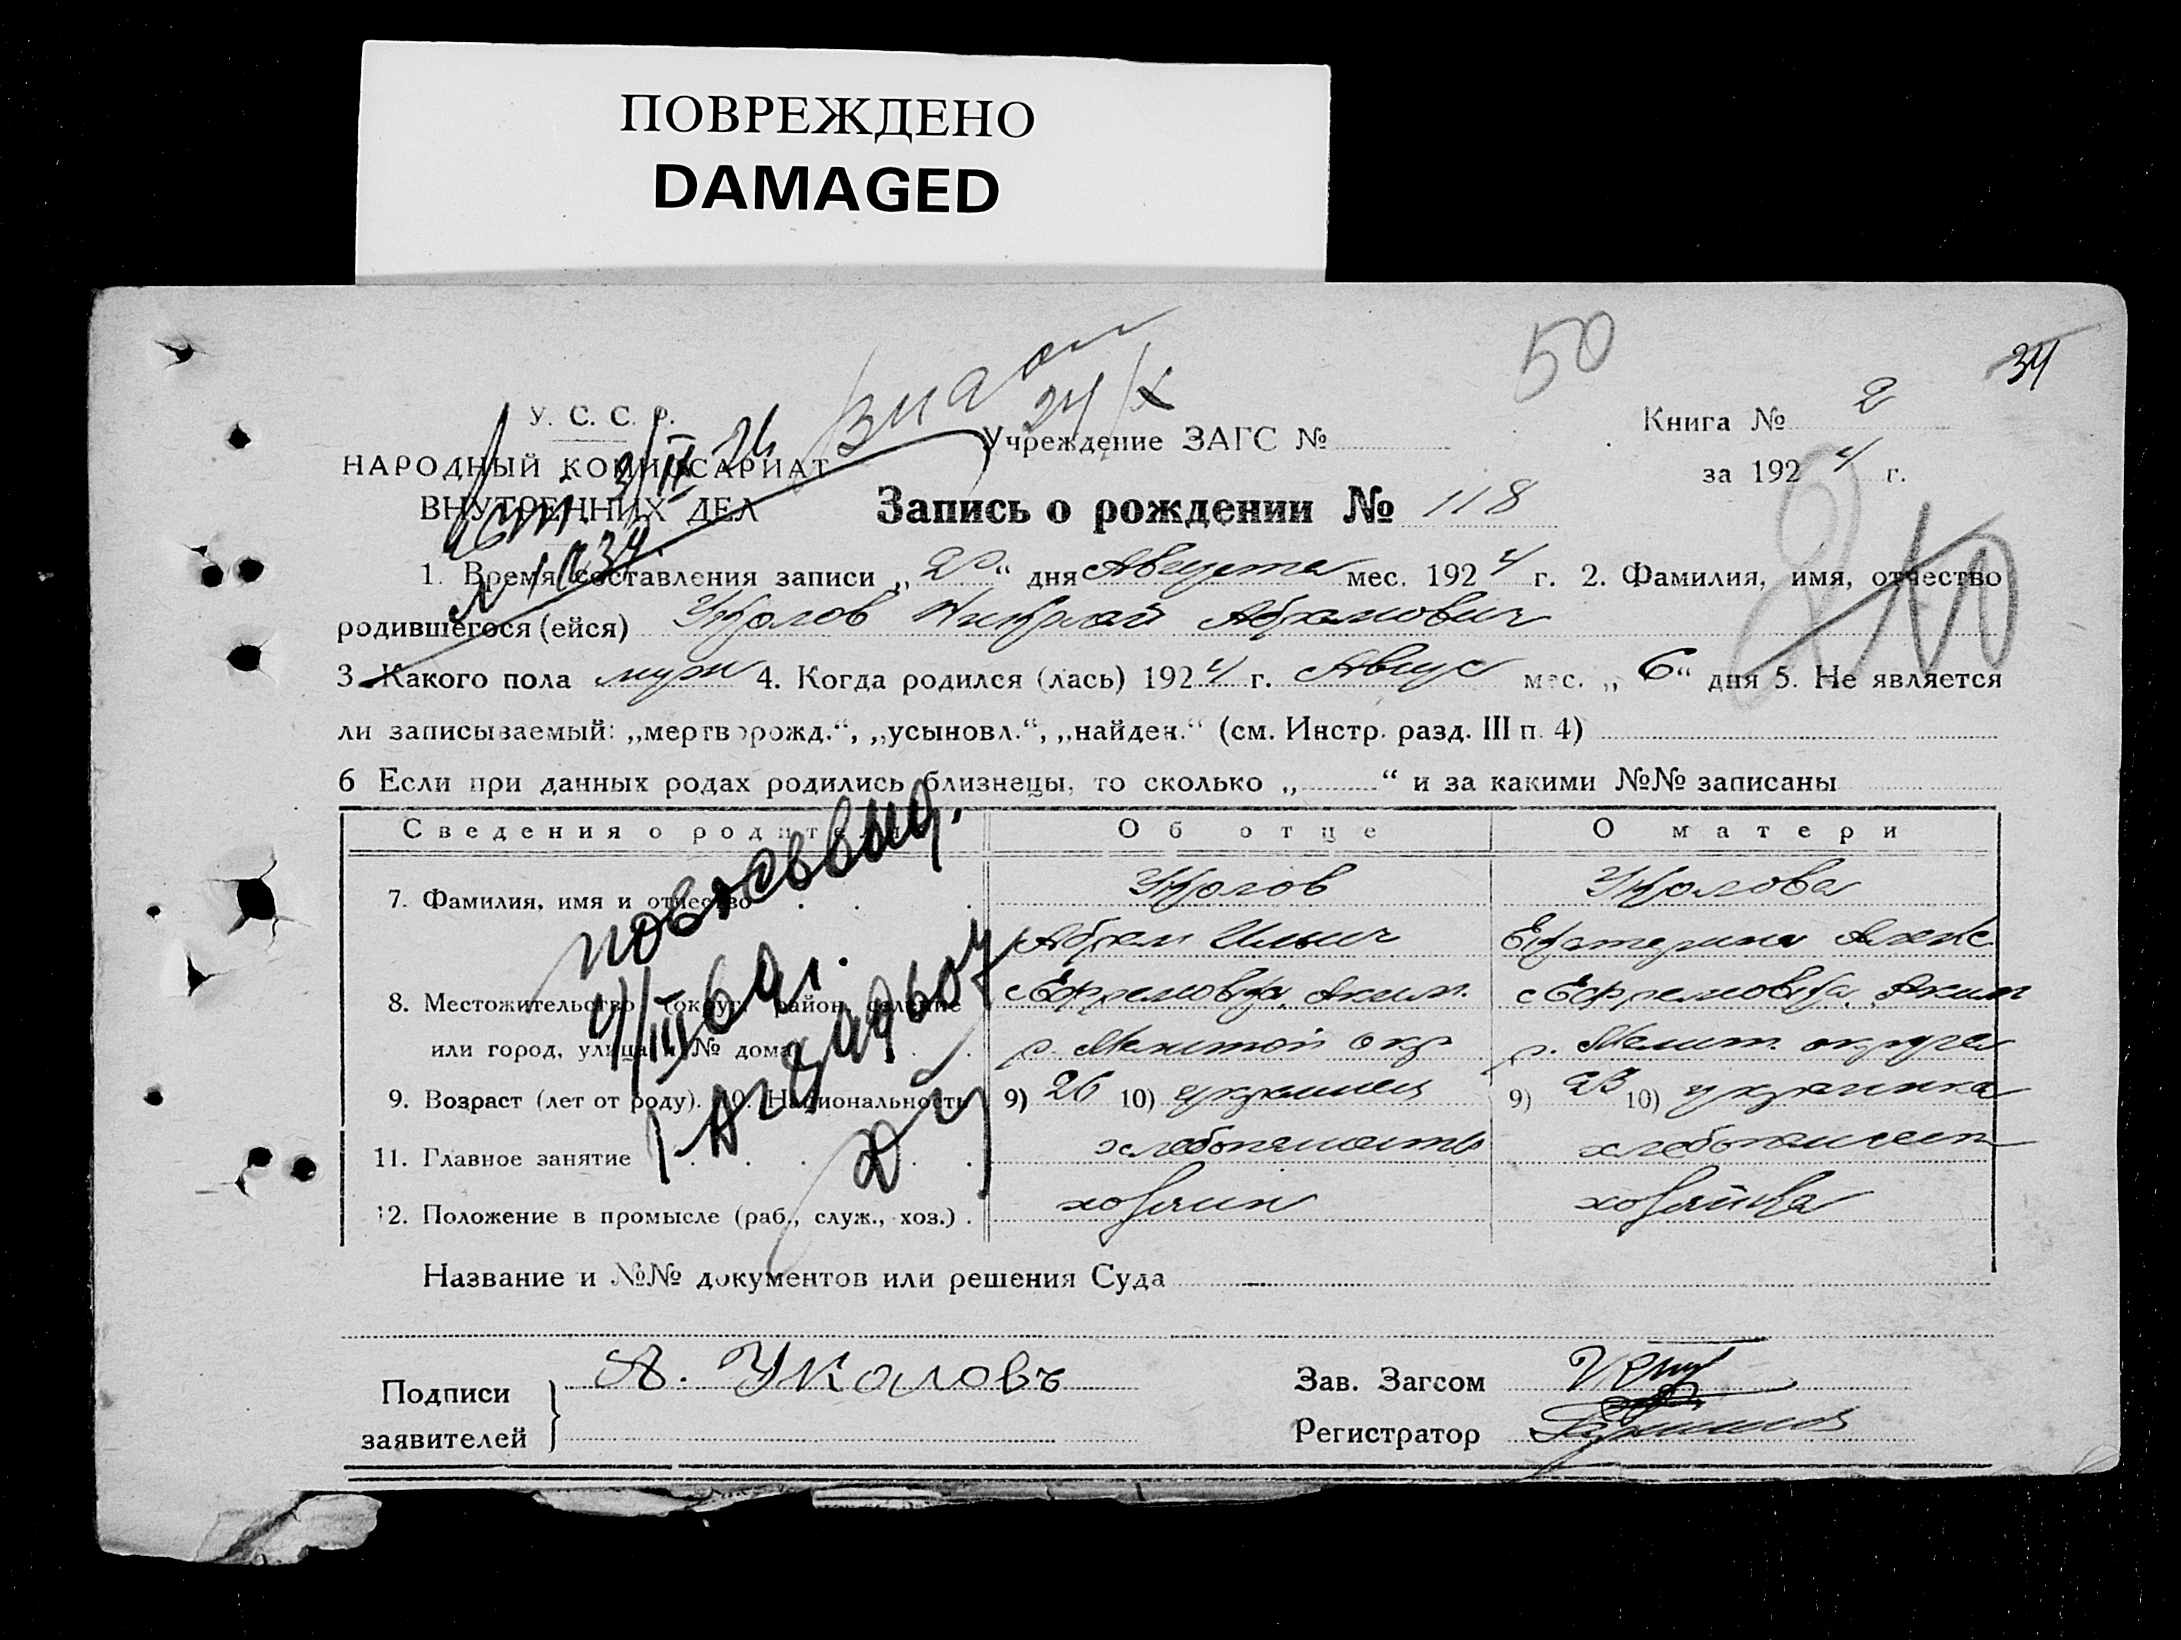 ПОВРЕЖДЕНО
DAMAGED
50
34
У. С. С. Р.
НАРОДНЫЙ КОМИССАРИАТ
ВНУТРЕННИХ ДЕЛ
24/X
Учреждение ЗАГС №
Книга № 2
за 1924 г.
Запись о рождении № 118
1. Время составления записи „ “ дня Августа мес. 1924 г. 2. Фамилия, имя, отчество
родившегося (ейся) Уколов Николай Абрамович
3. Какого пола муж 4. Когда родился (лась) 1924 г. Авгус мес. „6“ дня 5. Не является
ли записываемый: „мертворожд.“, „усыновл.“, „найден.“ (см. Инстр. разд. III п. 4)
6 Если при данных родах родились близнецы, то сколько „ “ и за какими №№ записаны
Сведения о родителях Об отце О матери
7. Фамилия, имя и отчество Уколов Уколова
Абрам Ильич Екатерина Алекс.
8. Местожительство (округ, район, селение с Ефремовка, Аким. с Ефремовка, Аким
или город, улица и № дома р. Мелитоп окр р. Мелит. округа
9. Возраст (лет от роду). 10. Национальность 9) 26 10) украинец 9) 23 10) украинка
11. Главное занятие хлебопашеств хлебопашест
12. Положение в промысле (раб., служ., хоз.) . хозяин хозяйка
повт. выд.
Название и №№ документов или решения Суда
Подписи заявителей А. Уколовъ
Зав. Загсом
Регистратор